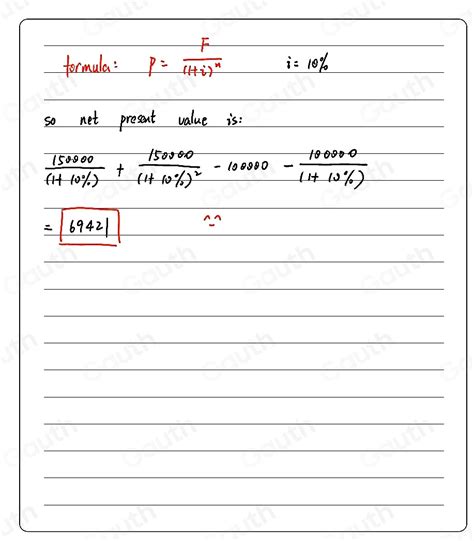 formula: P = F/(1+i)^n i = 10%
so net present value is:
150000/(1+10%) + 150000/(1+10%)^2 - 100000 - 100000/(1+10%)
= 69421 ^_^
Gauth